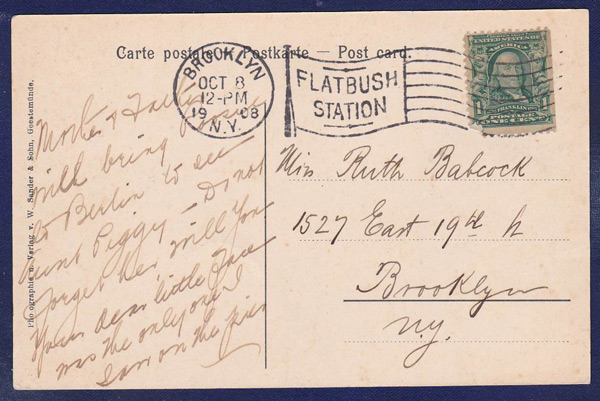 Carte postale — Postkarte — Post card.
BROOKLYN
OCT 8
12-PM
1908
N.Y.
FLATBUSH
STATION
UNITED STATES OF
AMERICA
1
FRANKLIN
POSTAGE
ONE CENT
Mother & Father
will bring
to Berlin to see
Aunt Peggy – Do not
forget her, will you
Your dear little face
was the only one I
saw on the pier
Miss Ruth Babcock
1527 East 19th St
Brooklyn
N.Y.
Photographie u. Verlag v. W. Sander & Sohn, Geestemünde.